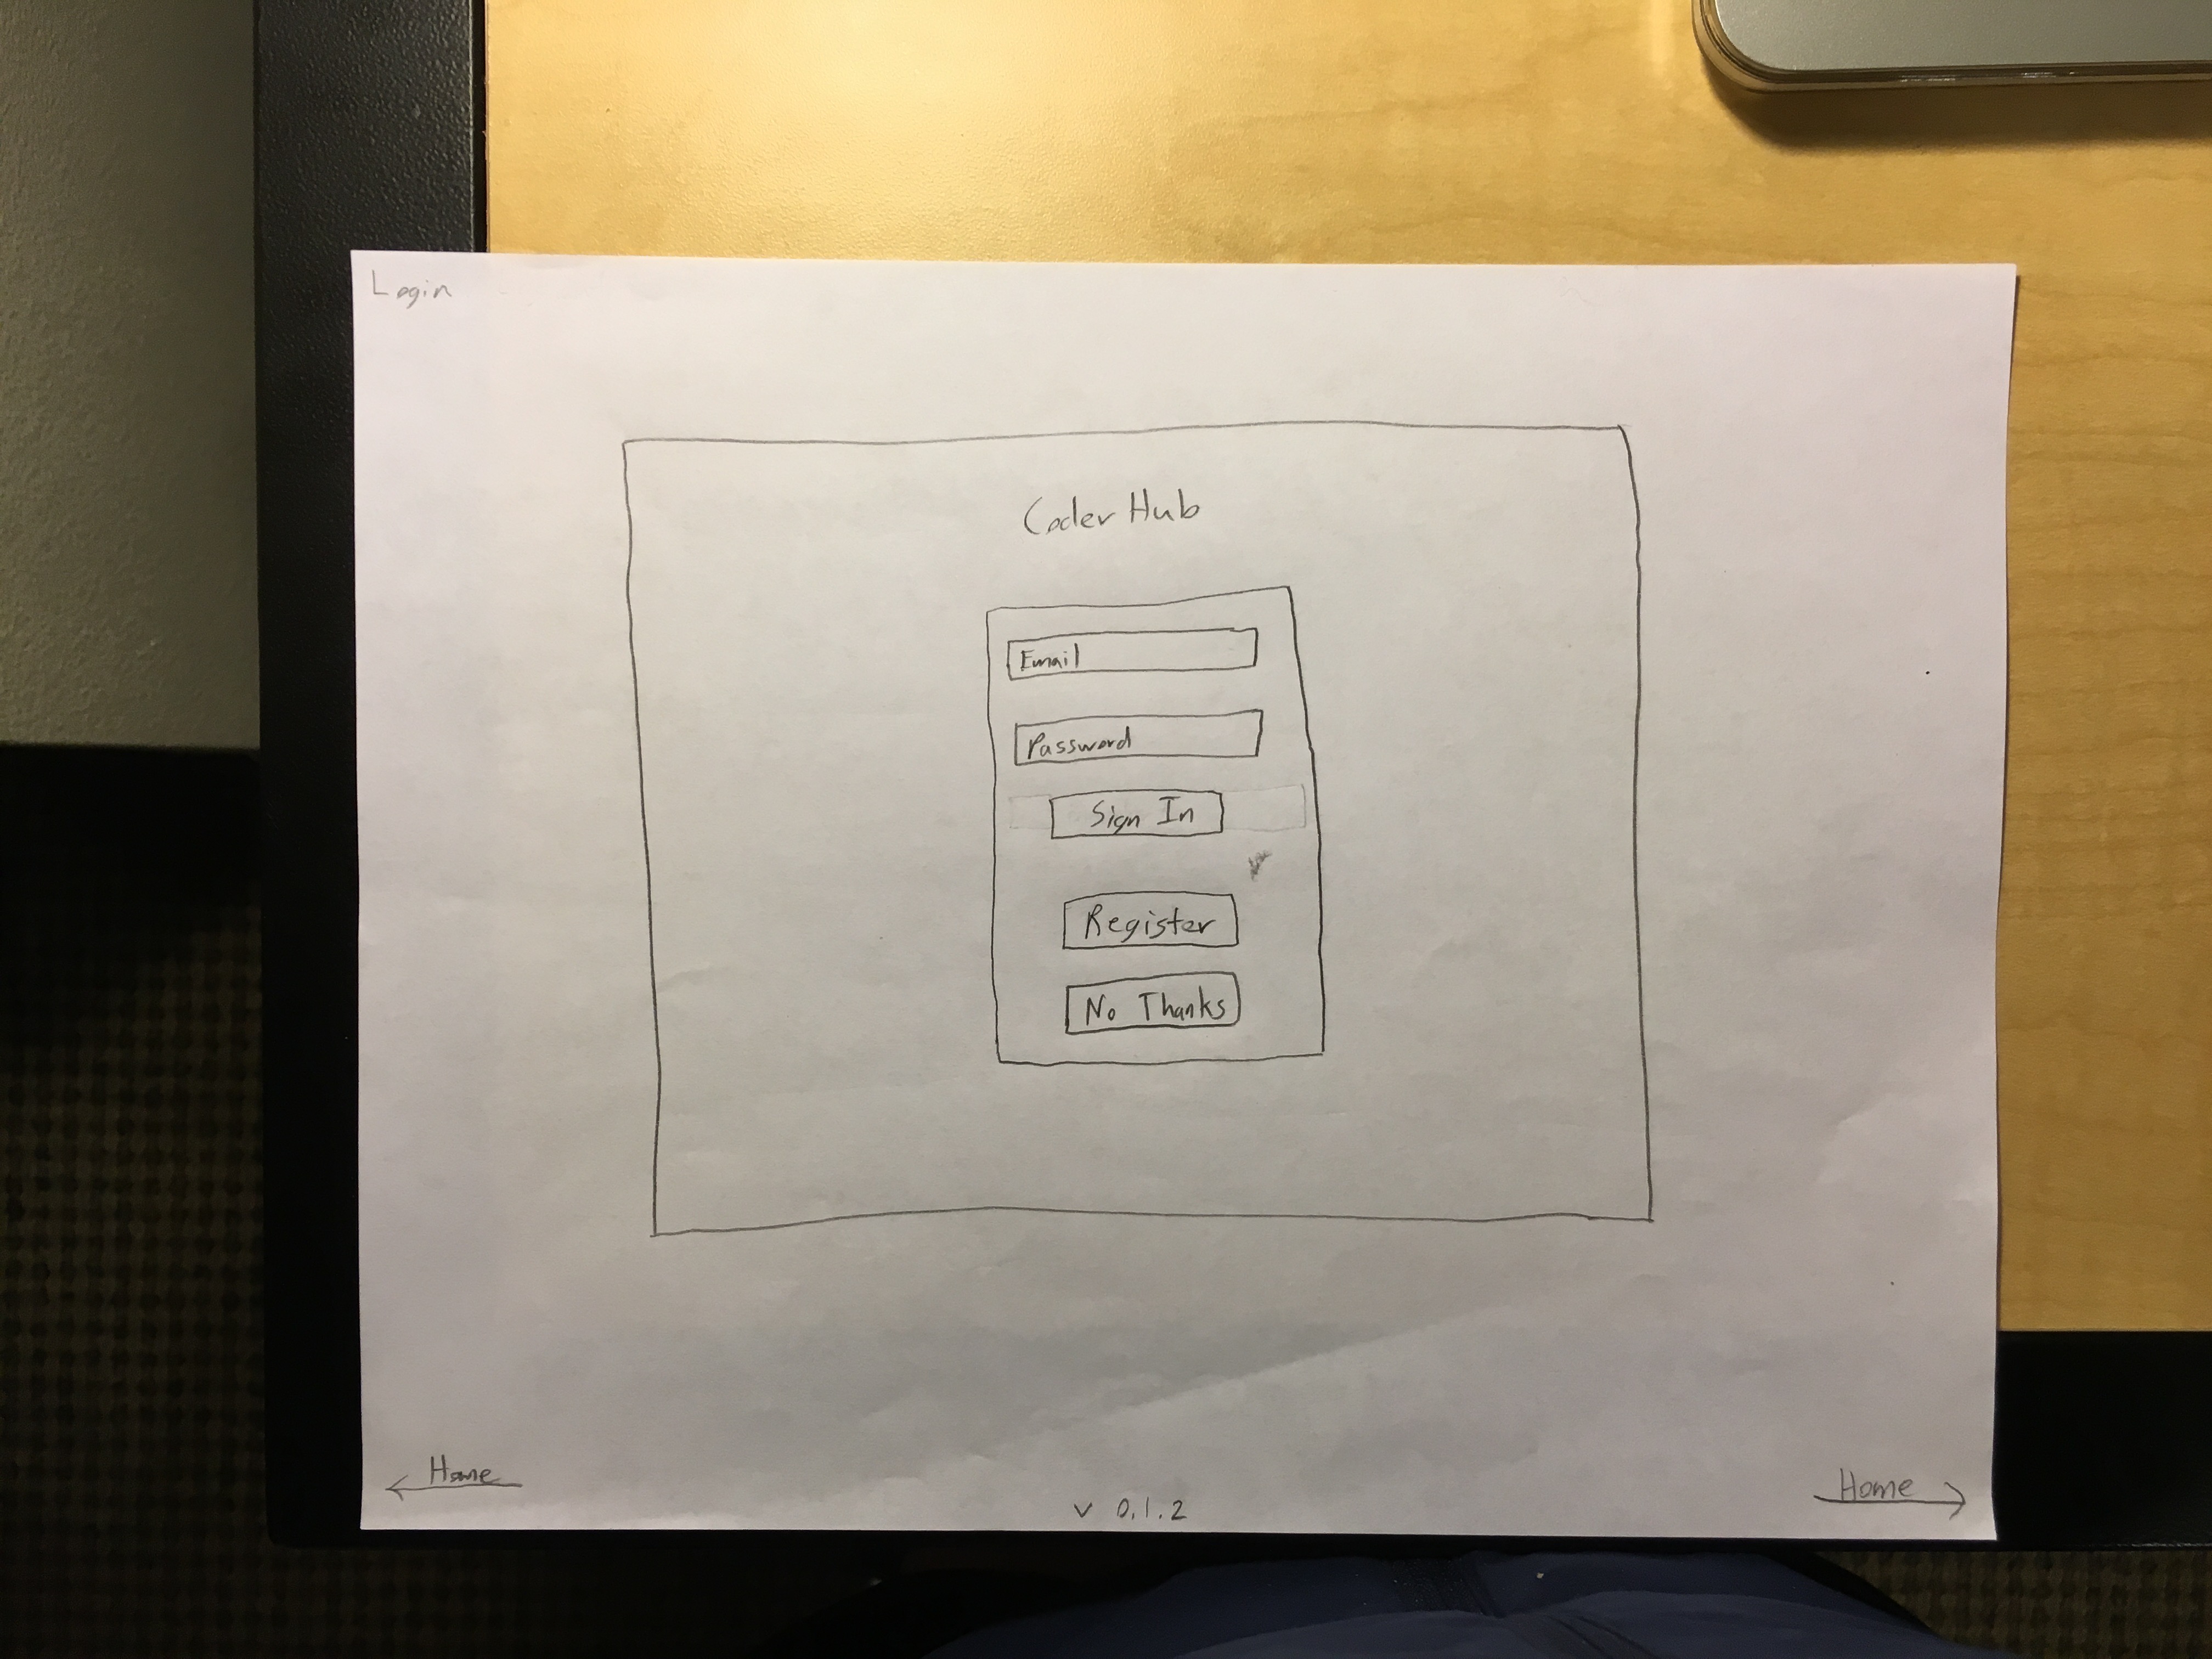 Login
Coder Hub
Email
Password
Sign In
Register
No Thanks
Home
Home
v 0.1.2